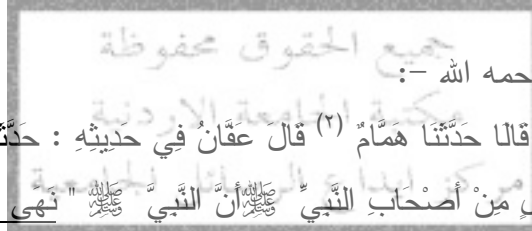 جميع الحقوق محفوظة
حمه الله –:
مكتبة الجامعة الاردنية
قَالَا حَدَّثَنَا هَمَّامٌ (٢) قَالَ عَفَّانُ فِي حَدِيثِهِ :
مركز ايداع الرسائل الجامعية
مِنْ أَصْحَابِ النَّبِيِّ ﷺ أَنَّ النَّبِيَّ ﷺ " نَهَى